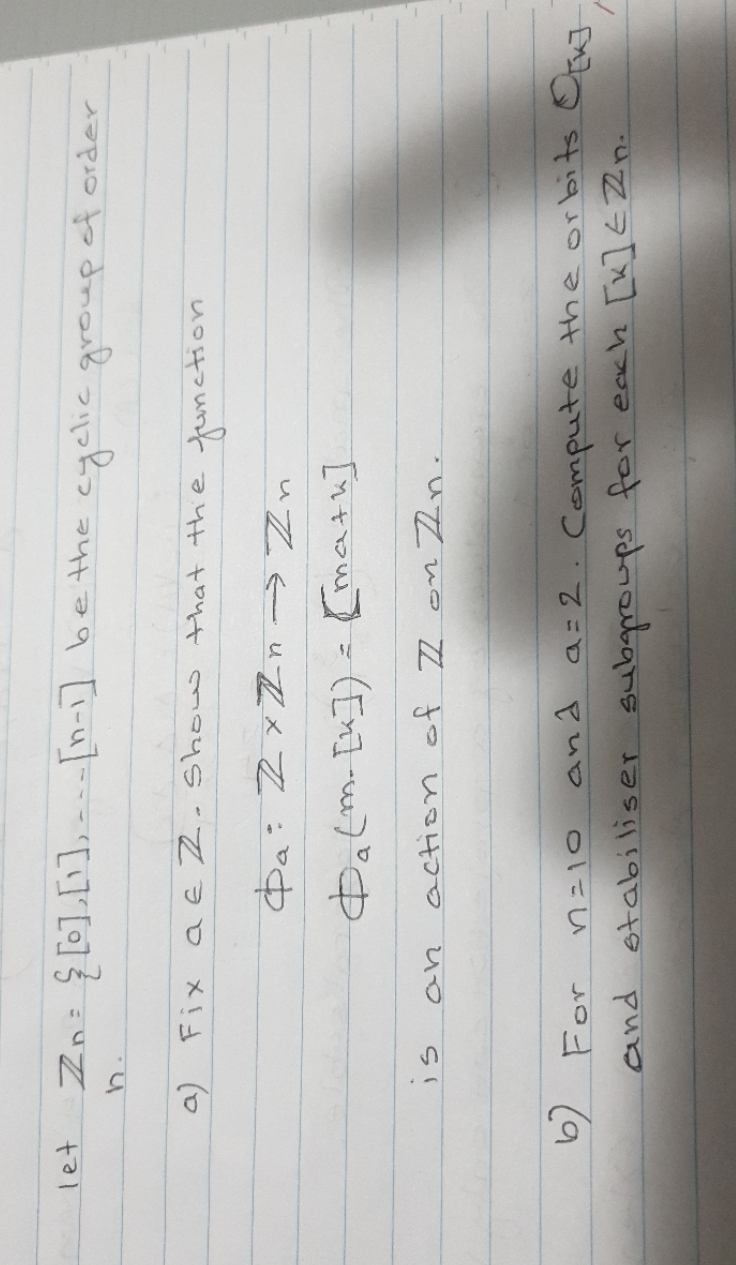 let Zn = {[0],[1],---[n-1] be the cyclic group of order
n.
a) Fix a ∈ ℤ. show that the function
Φa : ℤ x ℤn → ℤn
Φa (m. [k]) = [ma+k]
is an action of ℤ on ℤn.
b) For n=10 and a=2. Compute the orbits O[k]
and stabiliser subgroups for each [k] ∈ ℤn.